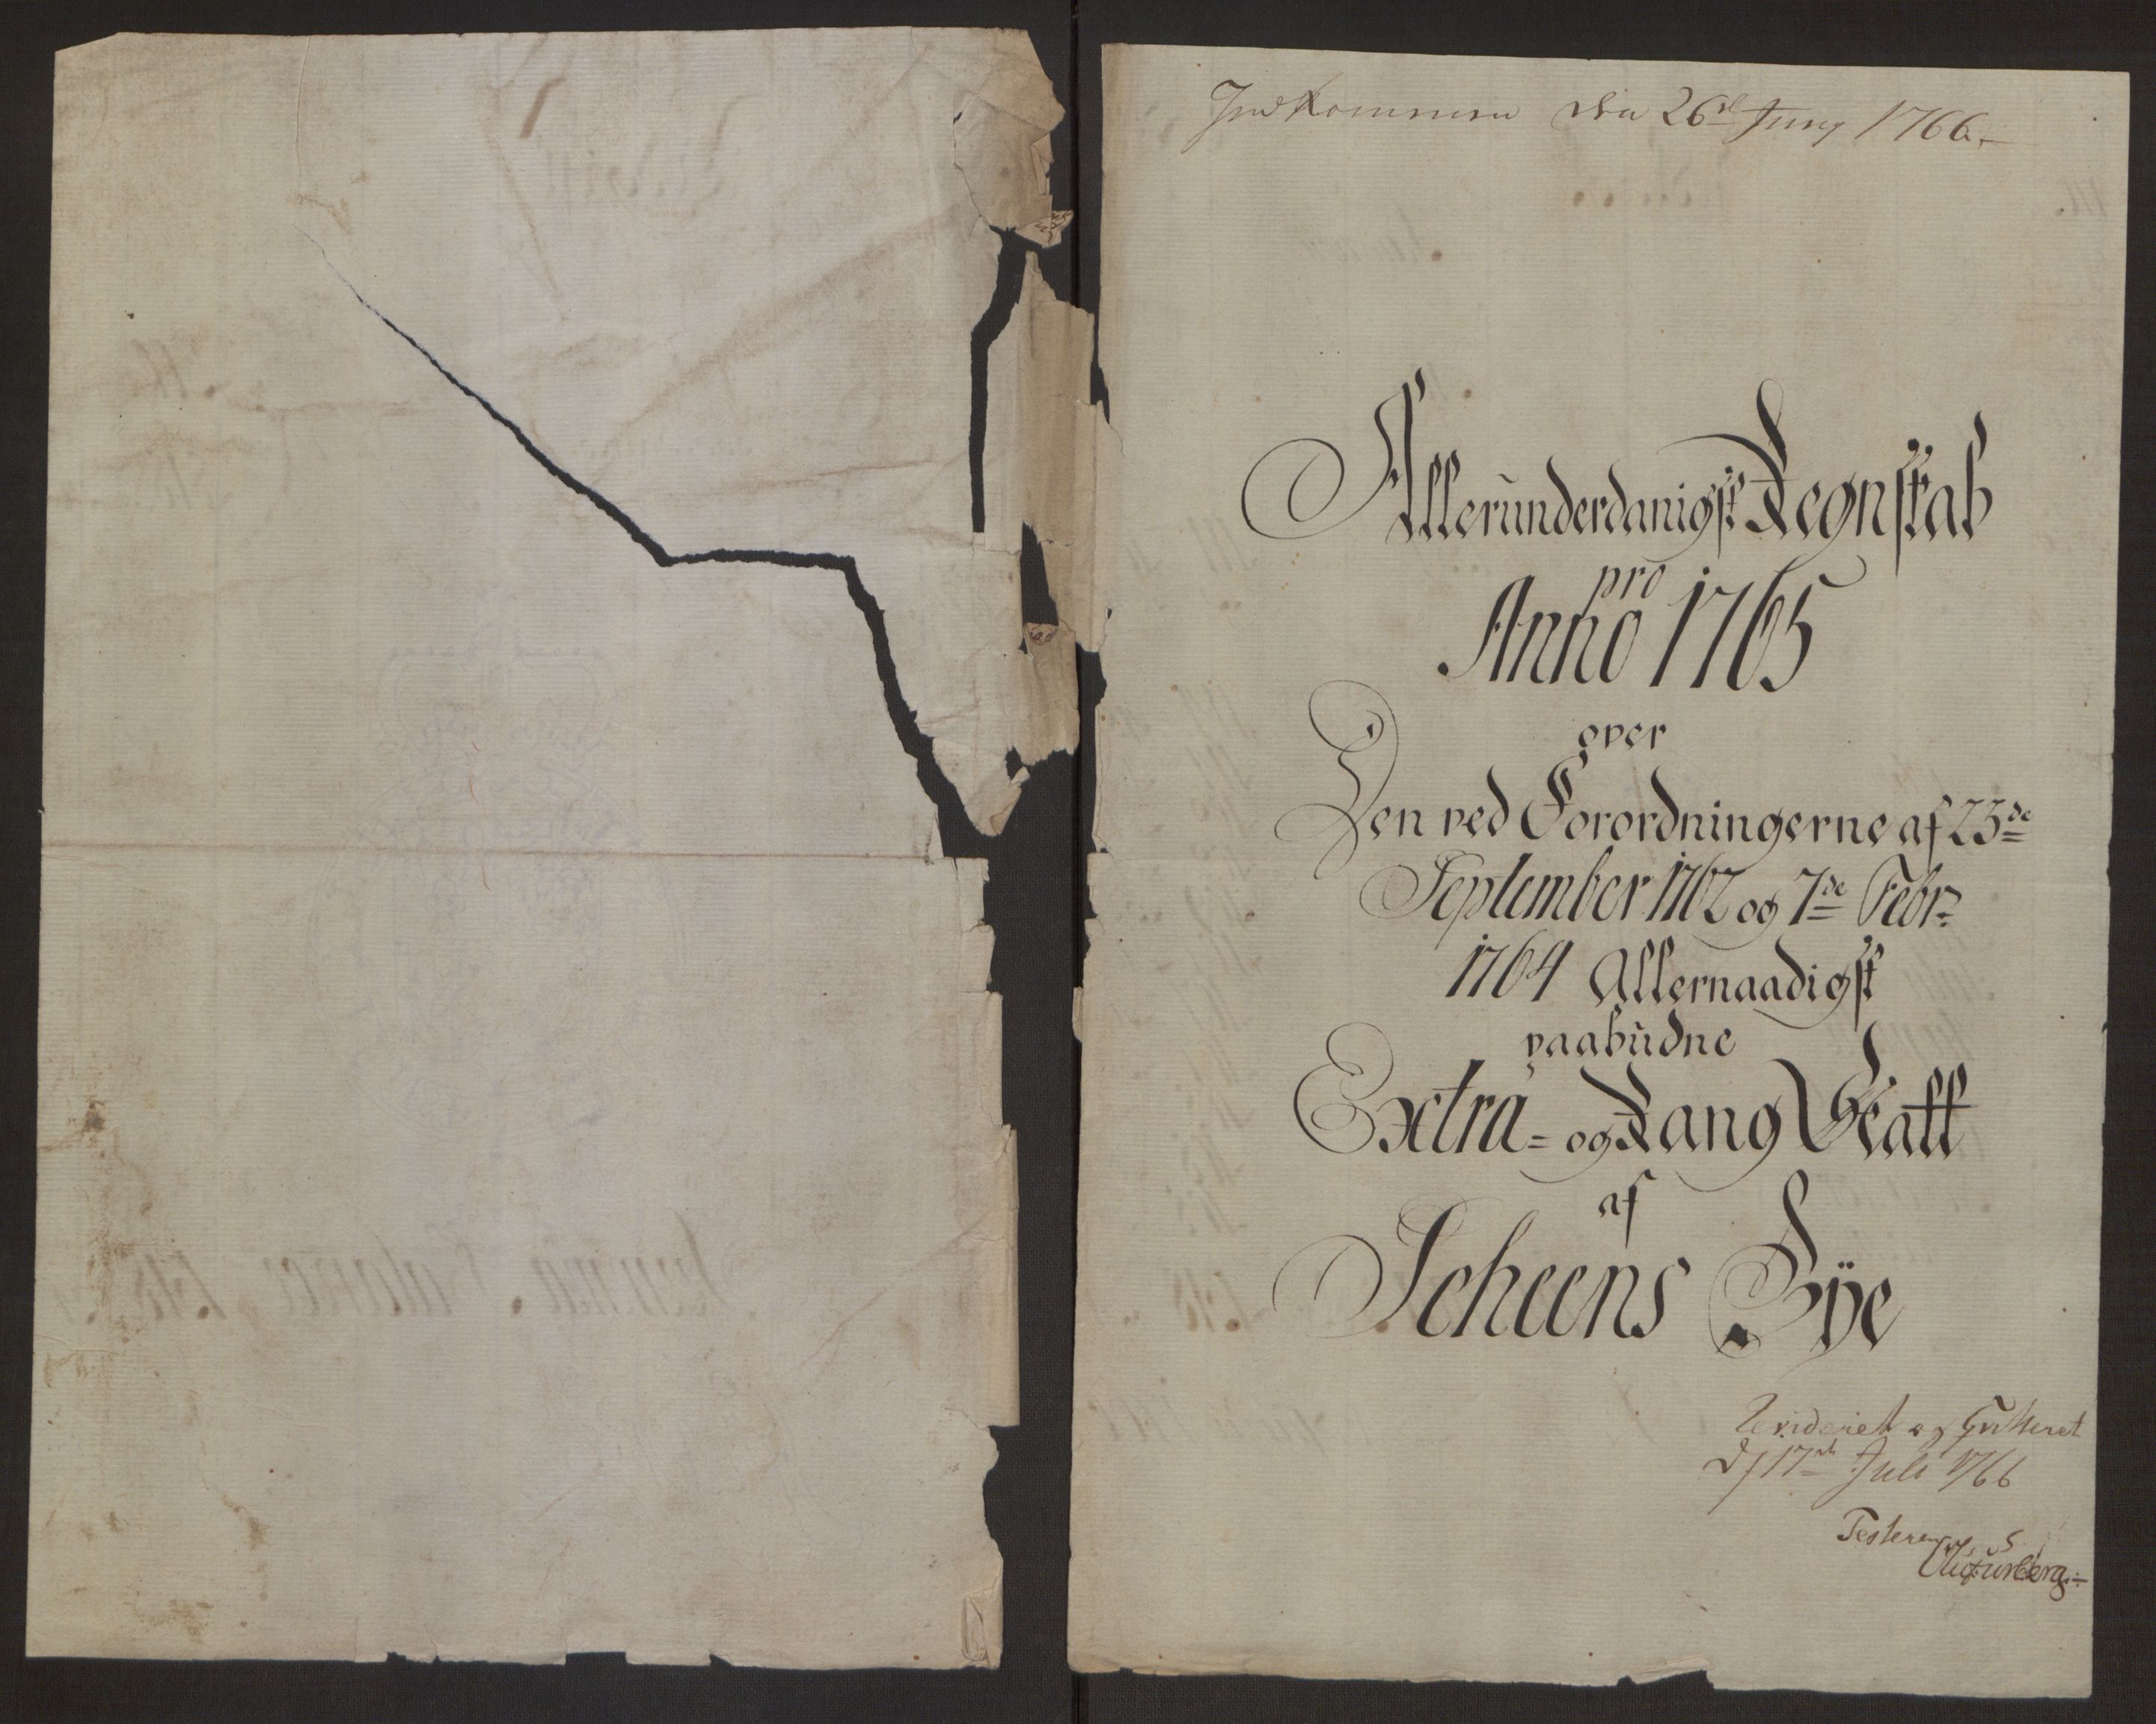 Indkommen den 26de Juny 1766.
Allerunderdanigst Regnskab
pro
Anno 1765
over
Den ved Forordningerne af 23de
September 1762 og 7de Febr:
1764 Allernaadigst
paabudne
Extra- og Rang Skatt
af
Scheens Bÿe
Revideret og Qvitteret
d 17de Juli 1766
Testerer